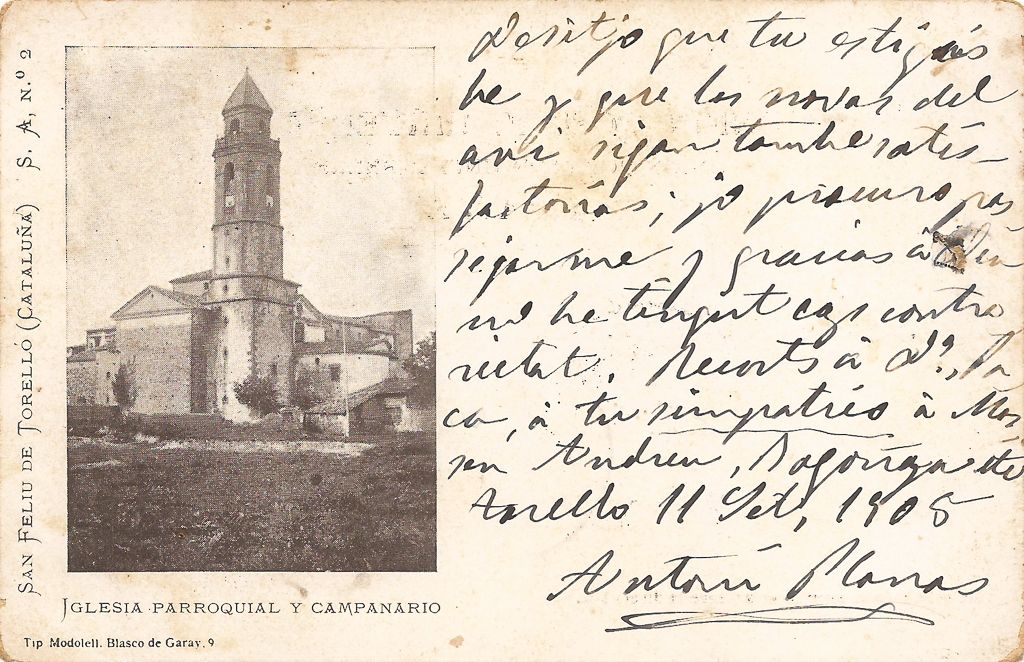 SAN FELIU DE TORELLÓ (CATALUÑA) S. A, N.º 2
IGLESIA PARROQUIAL Y CAMPANARIO
Tip Modolell. Blasco de Garay, 9
Desitjo que tu estigués
be y que las novas del
avi sigan tambe satis-
factorias; jo procuro pas
sejarme y gracias à Deu
no he tingut cap contra
rietat. Recorts à Dª, Pa
ca, à tu simpatrió à Mos
sen Andreu,
Torello 11 Set, 1905
Antoni Planas